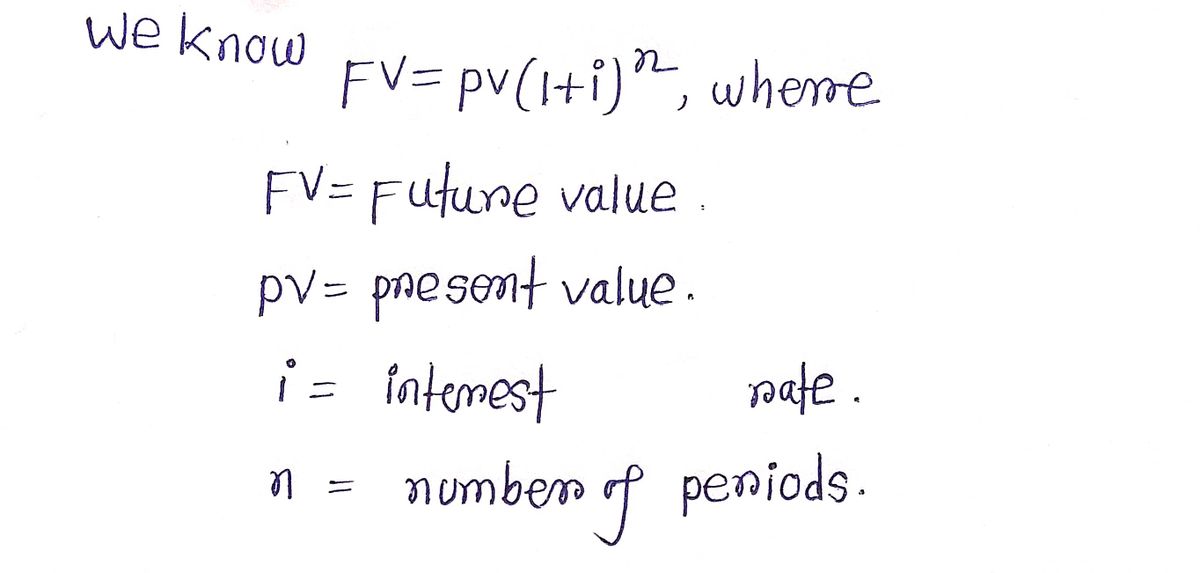 We know
FV = pv(1+i)^n, where
FV = Future value.
pv = present value.
i = interest rate.
n = number of periods.